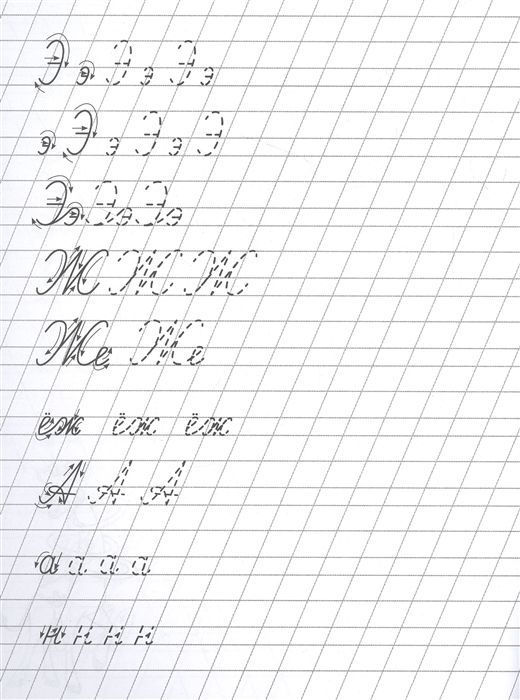 Э э Э э Э э
э Э э Э э Э
Ээ Ээ Ээ
Ж Ж Ж
Же Же
ёж ёж ёж
А А А
а а а а
н н н н